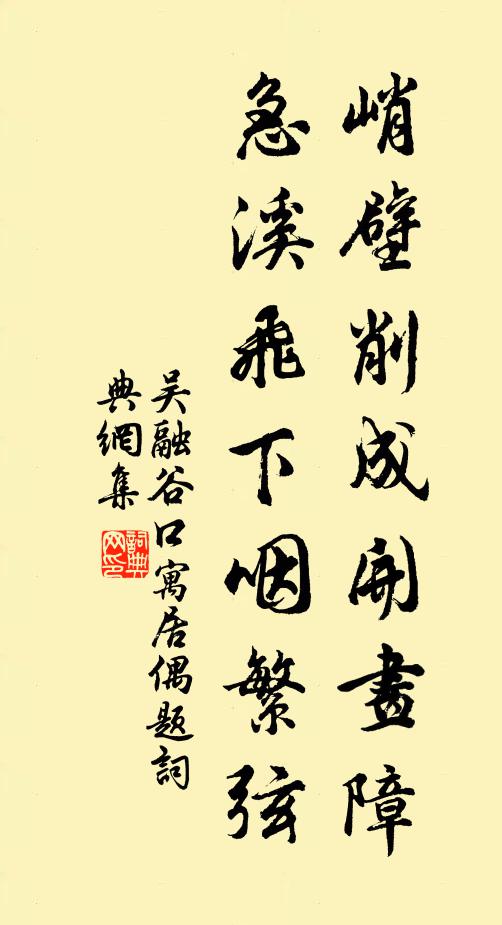 峭壁削成開畫障
急溪飛下咽繁弦
吴融谷口寓居偶题詞
典網集
詞典
网印